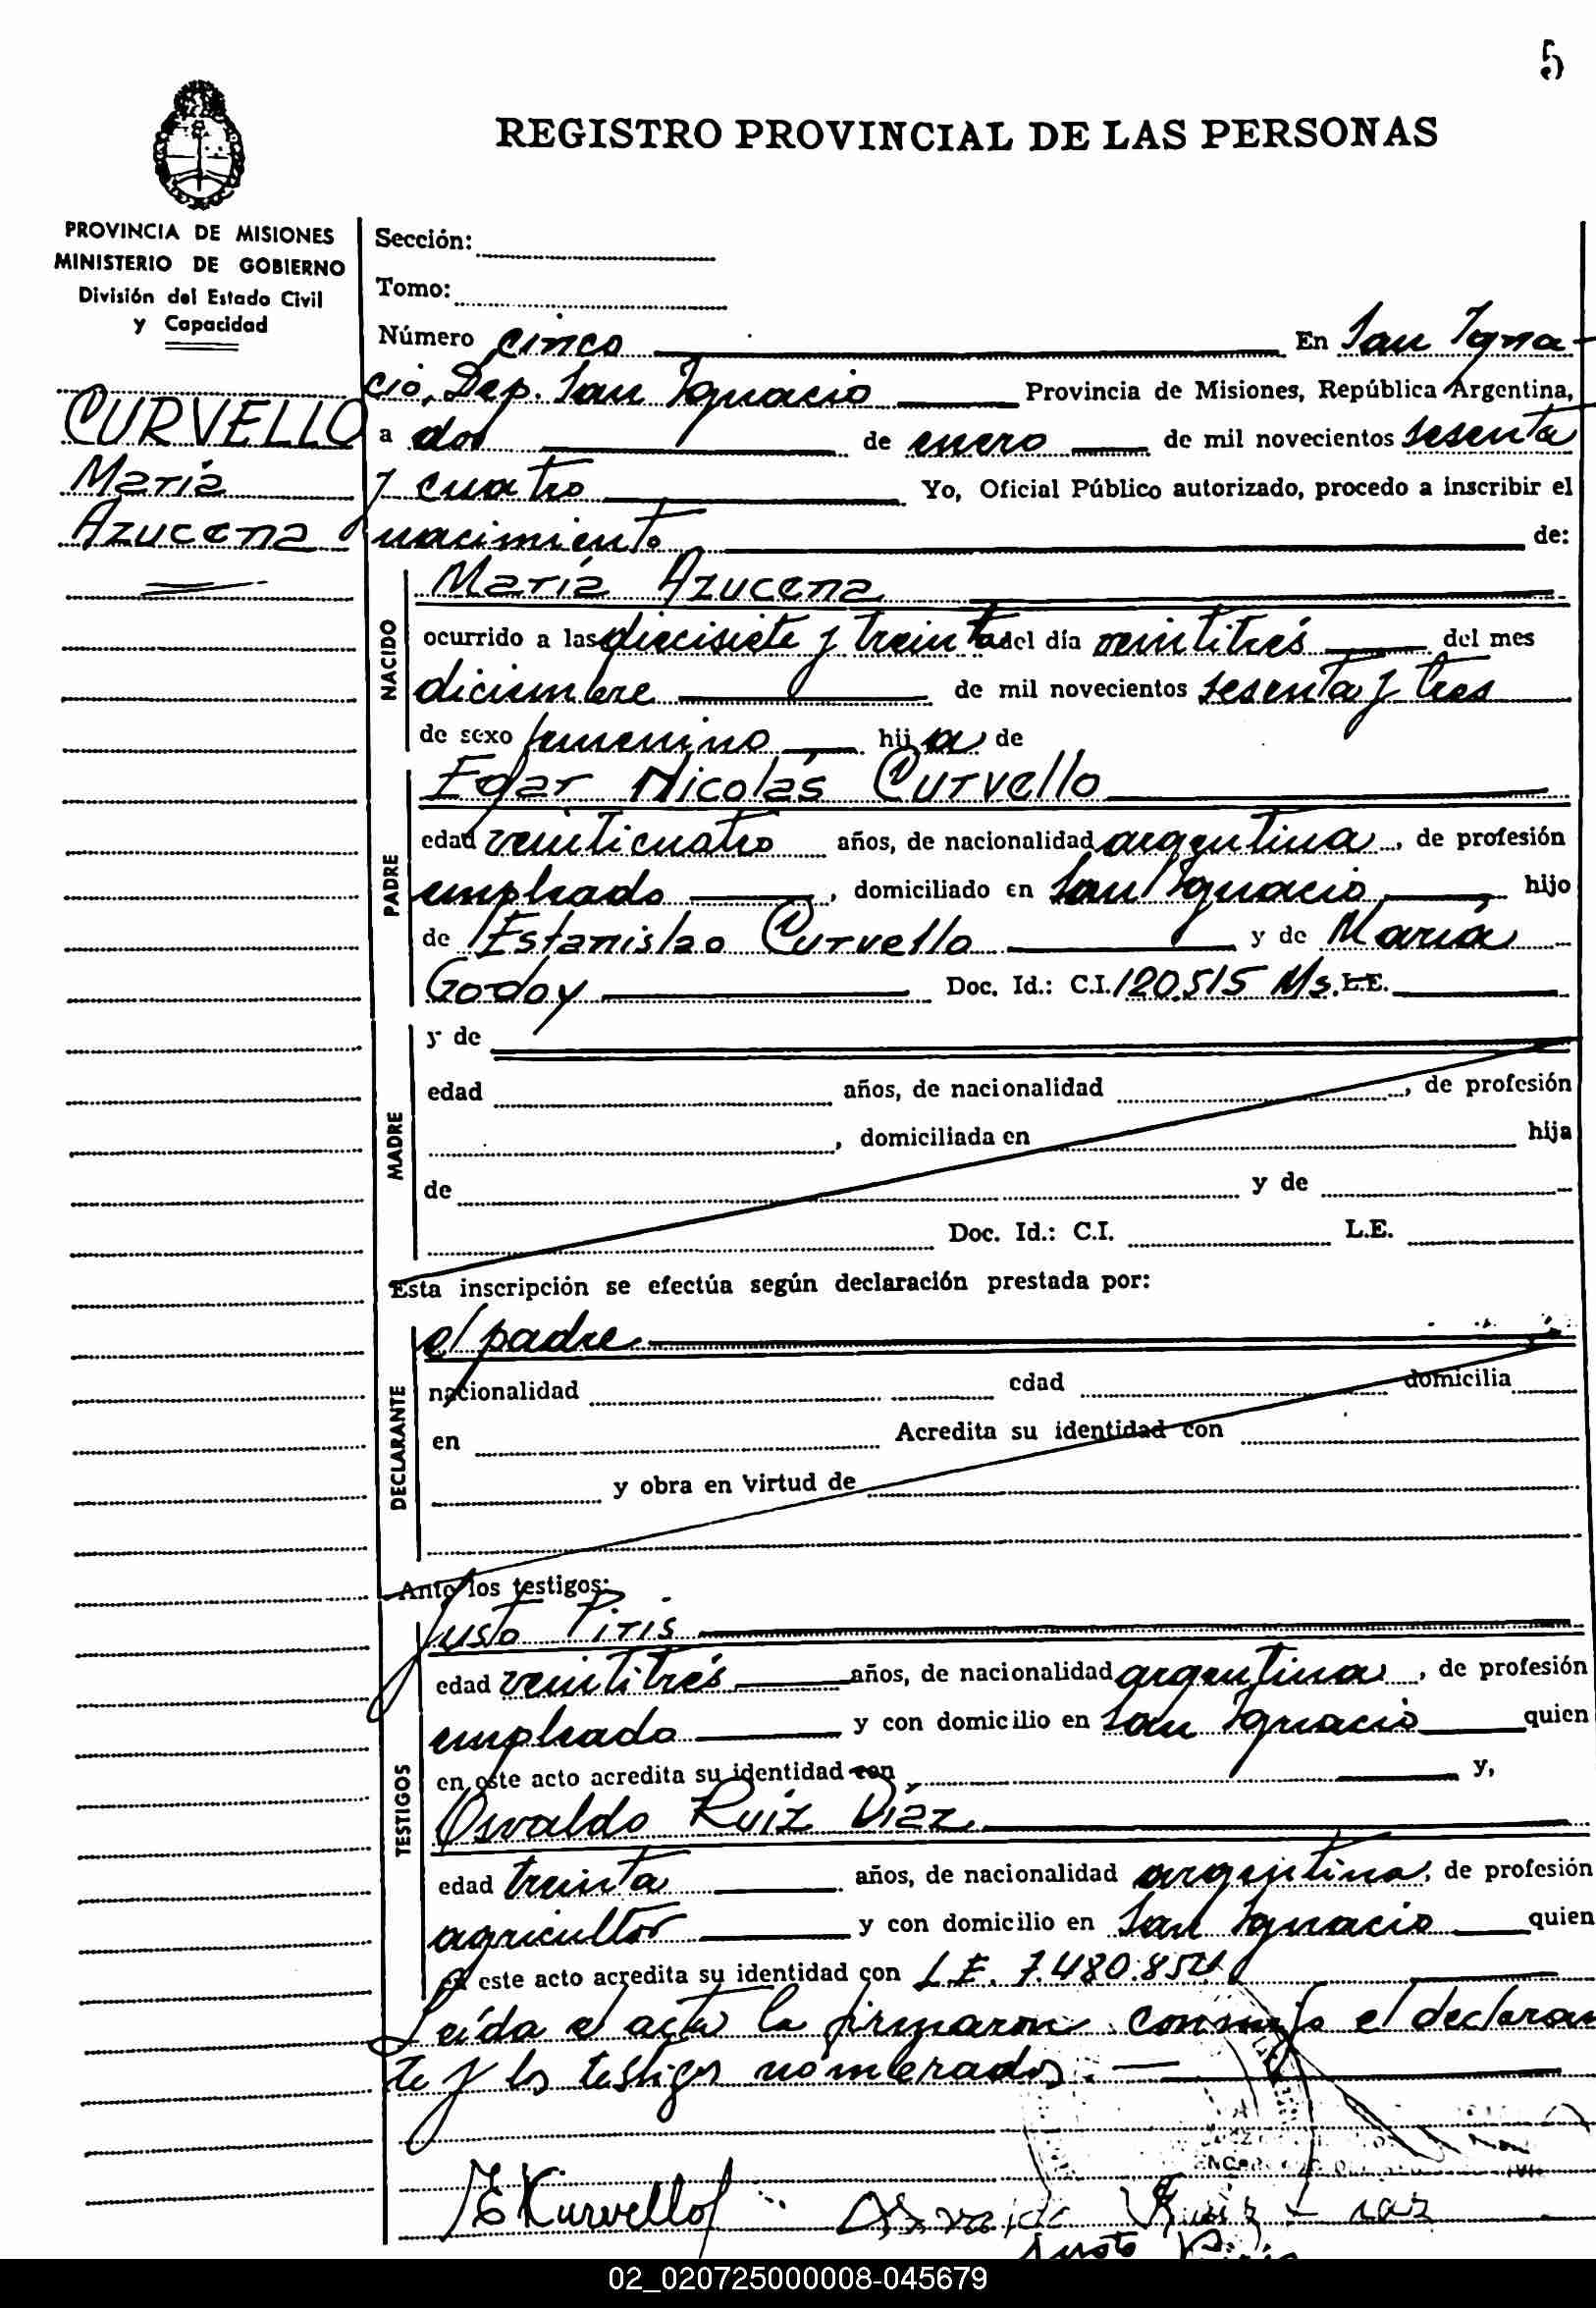 5
REGISTRO PROVINCIAL DE LAS PERSONAS
PROVINCIA DE MISIONES
MINISTERIO DE GOBIERNO
División del Estado Civil
y Capacidad
CURVELLO
María
Azucena
Sección:
Tomo:
Número cinco En San Igna-
cio, Dep. San Ignacio Provincia de Misiones, República Argentina,
a dos de enero de mil novecientos sesenta
y cuatro Yo, Oficial Público autorizado, procedo a inscribir el
nacimiento de:
NACIDO
María Azucena
ocurrido a las diecisiete y treinta del día veintitrés del mes
diciembre de mil novecientos sesenta y tres
de sexo femenino hija de
PADRE
Egar Nicolás Curvello
edad veinticuatro años, de nacionalidad argentina, de profesión
empleado, domiciliado en San Ignacio hijo
de Estanislao Curvello y de María
Godoy Doc. Id.: C.I. 120.515 Ms. L.E.
MADRE
y de
edad años, de nacionalidad , de profesión
, domiciliada en hija
de y de
Doc. Id.: C.I. L.E.
Esta inscripción se efectúa según declaración prestada por:
DECLARANTE
el padre
nacionalidad edad domicilia
en Acredita su identidad con
y obra en virtud de
Ante los testigos:
TESTIGOS
Justo Piris
edad veintitrés años, de nacionalidad argentina, de profesión
empleado y con domicilio en San Ignacio quien
en este acto acredita su identidad con y,
Osvaldo Ruiz Díaz
edad treinta años, de nacionalidad argentina, de profesión
agricultor y con domicilio en San Ignacio quien
en este acto acredita su identidad con L.E. 7.480.854
Leída el acta la firmaron conmigo el declaran
te y los testigos nombrados.
E Kurvello
Osvaldo Ruiz Diaz
Justo Piris
02_020725000008-045679